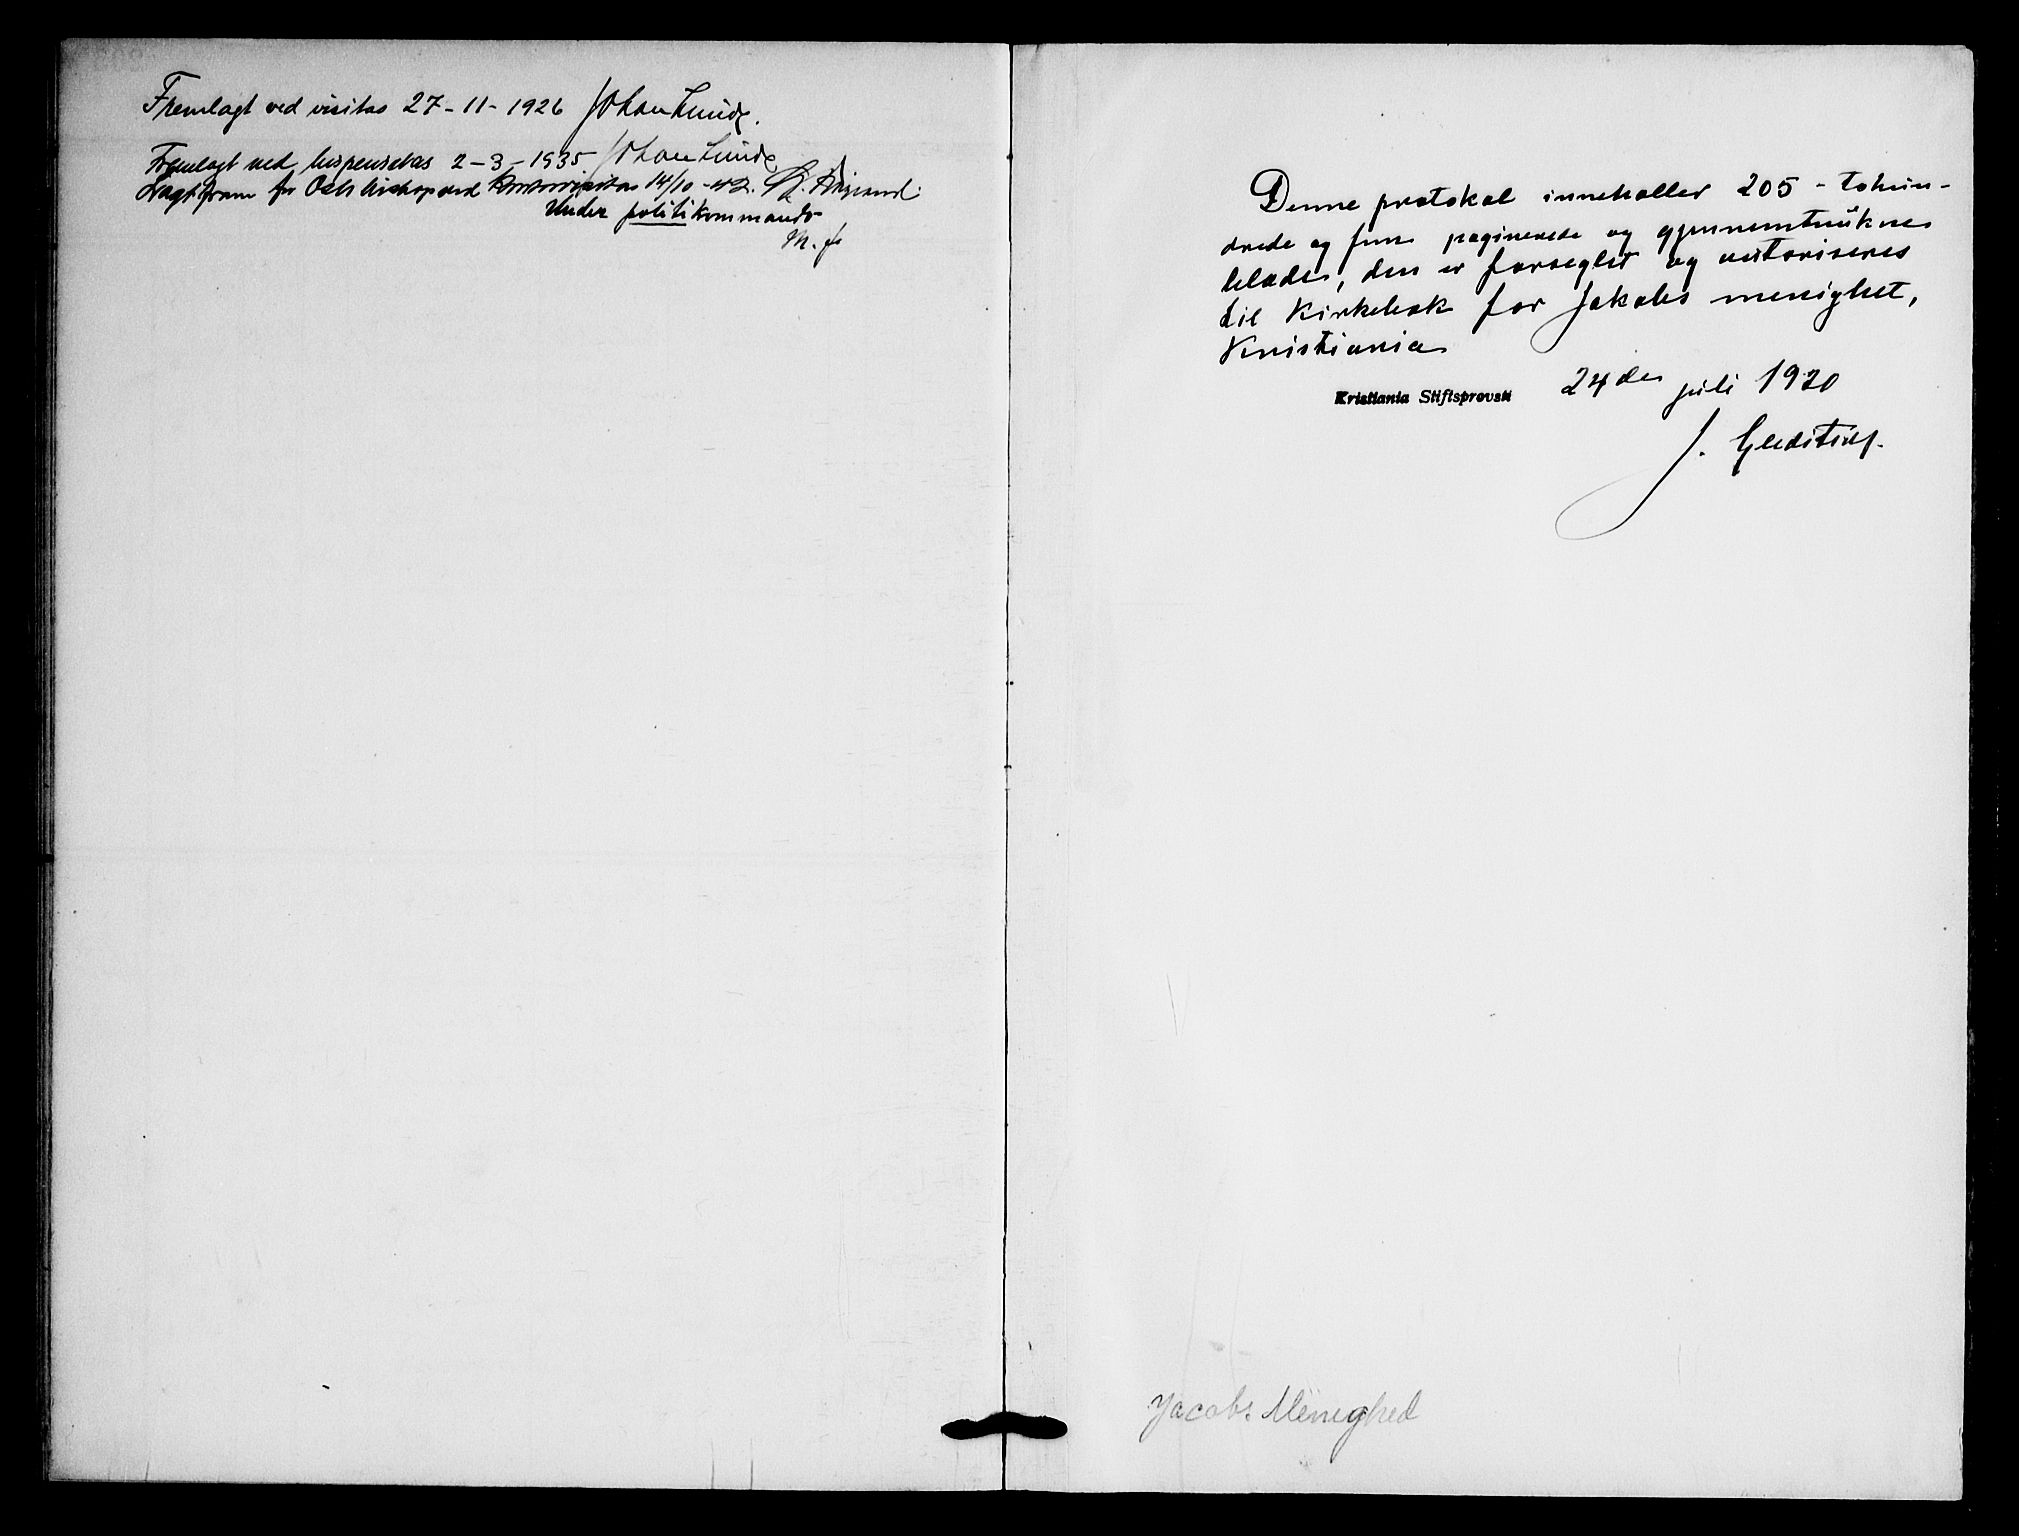 Fremlagt ved visitas 27-11-1926 Johan Lunde.
Fremlagt ved bispevisitas 2-3-1935 Johan Lunde
Lagt fram for Oslo biskop ved kontorvisitas 14/10-42.
Under politikommando
M. J.
Denne protokol inneholler 205 - tohun-
drede og fem paginerede og gjennemtrukne
blade, den er forseglet og autoriseres
til Kirkebok for Jakobs menighet,
Kristiania
Kristiania Stiftsprovsti 24de juli 1920
J. Gleditsch.
Jacobs Menighed